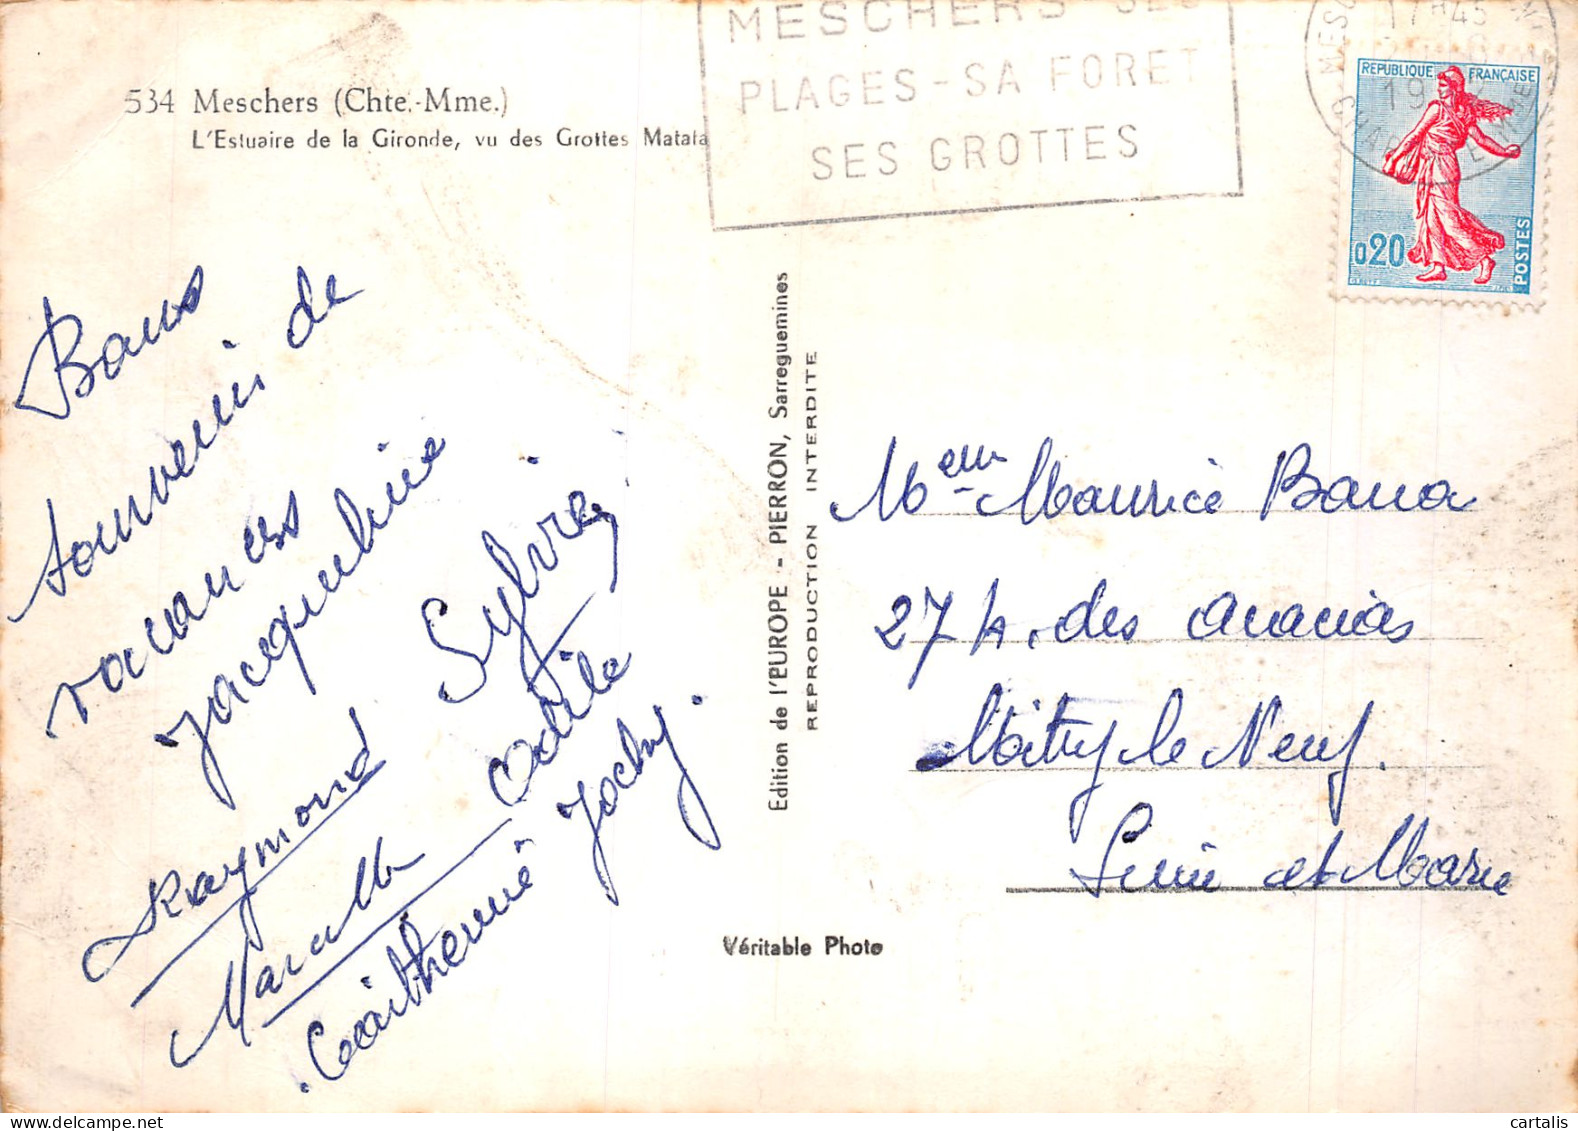 534 Meschers (Chte.-Mme.)
L'Estuaire de la Gironde, vu des Grottes Matata
MESCHERS - SES
PLAGES - SA FORET
SES GROTTES
17H45
19
REPUBLIQUE FRANÇAISE
0,20
POSTES
Bons
souvenir de
vacances
Jacqueline
Sylvie
Raymond
Odile
Marcelle
Jochy.
Caitherine
Edition de l'EUROPE - PIERRON, Sarreguemines
REPRODUCTION INTERDITE
Véritable Photo
Mem Maurice Bana
27 A. des acacias
Mitry le Neuf.
Seine et Marne
cartalis.com